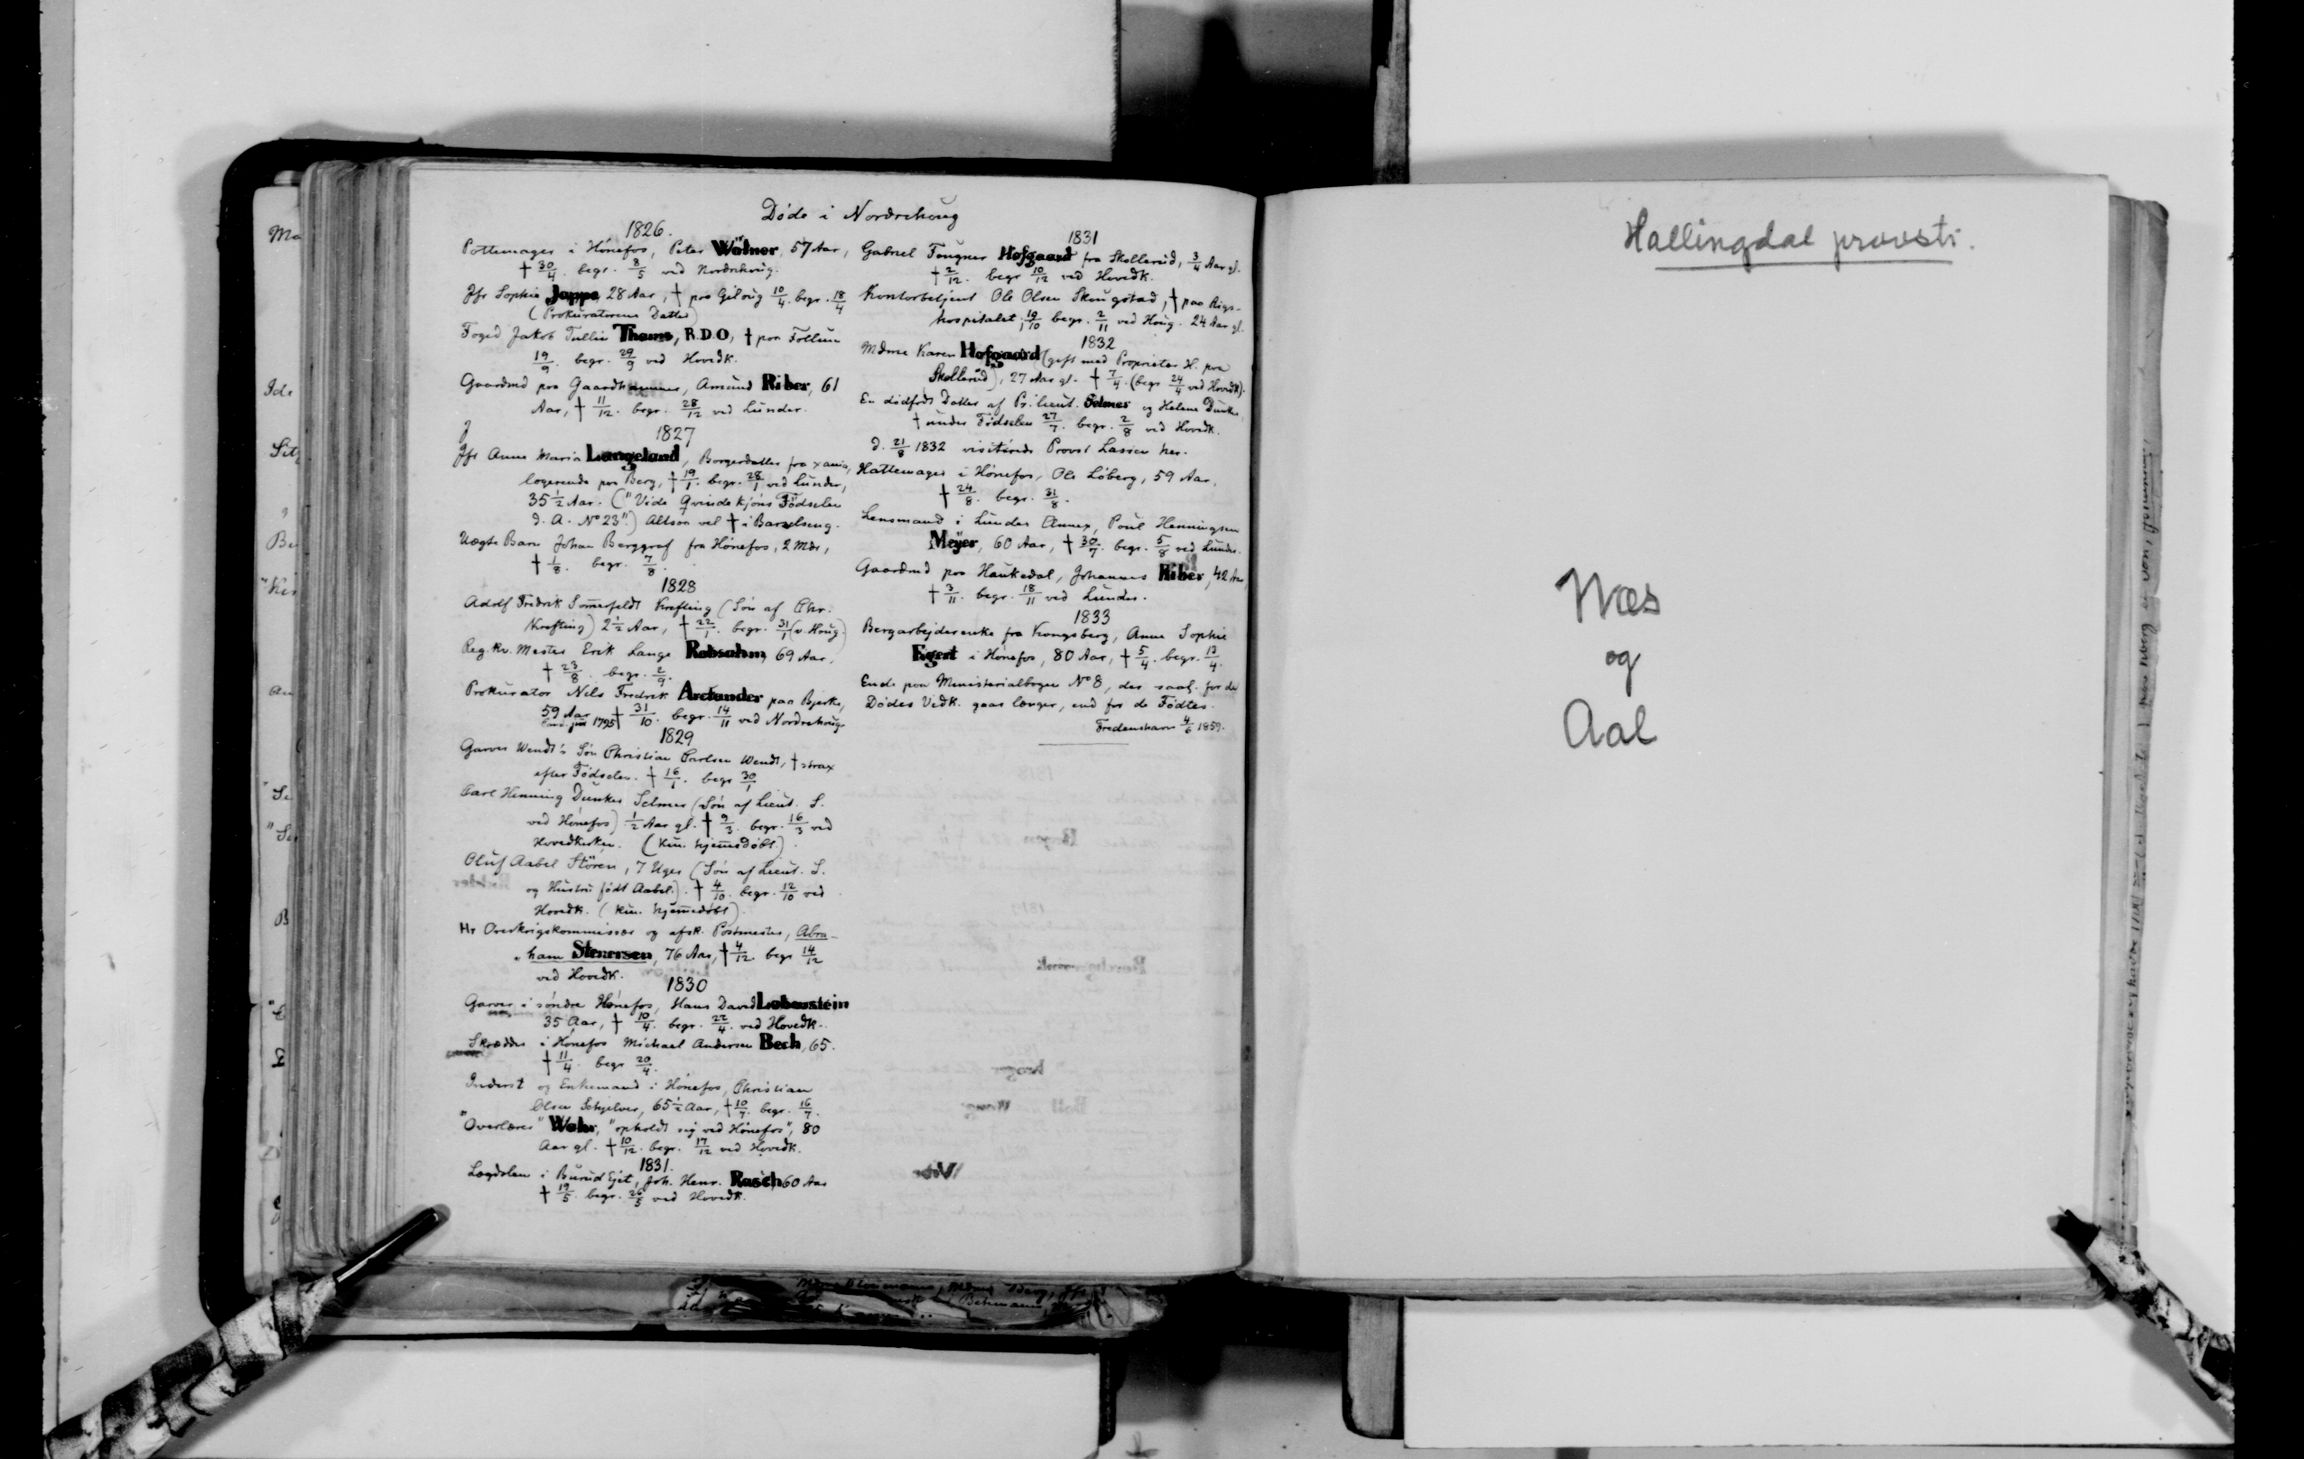 Døde i Nordrehoug
1826.
Pottemager i Hønefos, Peter Wölner, 57 Aar,
† 30/4. begr. 8/5 ved Nordrehoug.
Jfr Sophie Jappe 28 Aar, † paa Giloug 10/4. begr. 18/4
(Prokuratorens Datter)
Foged Jakob Tullin Thams, R.D.O, † paa Follum
19/9. begr. 29/9 ved Hovedk.
Gaardmd paa Gaardhammer, Amund Riber, 61
Aar, † 11/12. begr. 28/12 ved Lunder.
1827
Jfr Anne Maria Langeland, Borgerdatter fra Xania,
logerende paa Berg, † 19/1. begr. 28/1 ved Lunder,
35½ Aar. ("Vide Qvindekjøns Fødselen
d. A. No 23".) Altsaa vel † i Barselseng.
Uægte Barn Johan Berggraf fra Hønefos, 2 Mdr,
† 1/8. begr. 7/8.
1828
Adolf Fredrik Somerfeldt Krefting (Søn af Chr.
Krefting) 2½ Aar, † 22/1. begr. 31/1 (v. Houg.)
Reg.kv. Mester Erik Lange Robsahm, 69 Aar,
† 23/8. begr. 2/9.
Prokurator Nils Fredrik Arctander paa Bjerke,
59 Aar † 31/10. begr. 14/11 ved Nordrehoug
Cand. jur 1795
1829
Garver Wendt's Søn Christian Carlsen Wendt, † strax
efter Fødselen. † 16/1. begr 30/1
Carl Henning Dunker Selmer (Søn af Lieut. S.
ved Hønefos) ½ Aar gl. † 9/3. begr. 16/3 ved
Hovedkirken. (Kun hjemedøbt.)
Oluf Aabel Stören, 7 Uger (Søn af Lieut. S.
og Hustru født Aabel.). † 4/10. begr. 12/10 ved
Hovedk. (Kun hjemedøbt).
Hr Overkrigskommissær og afsk. Postmester, Abra-
ham Stenersen, 76 Aar, † 4/12. begr 14/12
ved Hovedk.
1830
Garver i søndre Hønefos, Hans David Lobenstein
35 Aar, † 10/4. begr. 22/4. ved Hovedk.
Skrædder i Hønefos Michael Andersen Bech, 65.
† 11/4. begr 20/4.
Inderst og Enkemand i Hønefos, Christian
Olsen Schjelver, 65½ Aar, † 10/7. begr. 16/7.
"Overlærer" Wehr, "opholdt sig ved Hønefos", 80
Aar gl. † 10/12. begr. 17/12 ved Hovedk.
1831.
Lægdslem i Burud Ejet, Joh. Henr. Rasch, 60 Aar
† 19/5. begr. 26/5 ved Hovedk.
1831
Gabriel Fougner Hofgaard fra Skollerud, 3/4 Aar gl.
† 2/12. begr 10/12 ved Hovedk.
Kontorbetjent Ole Olsen Skougstad, † paa Rigs-
hospitalet 19/10 begr. 2/11 ved Houg. 24 Aar gl.
1832
Mdme Karen Hofgaard (gift med Proprietær H. paa
Skollerud), 27 Aar gl. † 7/4. (begr 24/4 ved Hovedk).
En dødfødt Datter af Pr. Lieut. Selmer og Helene Dunker,
† under Fødselen 27/7. begr. 2/8 ved Hovedk.
d. 21/8 1832 visiterede Provst Lassen her.
Hattemager i Hønefos, Ole Löberg, 59 Aar,
† 24/8. begr. 31/8.
Lensmand i Lunder Annex, Poul Henningsen
Meyer, 60 Aar, † 30/7. begr. 5/8 ved Lunder.
Gaardmd paa Haukedal, Johannes Riber, 42 Aar,
† 3/11. begr. 18/11 ved Lunder.
1833
Bergarbejderenke fra Kongsberg, Anne Sophie
Egert i Hønefos, 80 Aar, † 5/4. begr. 13/4.
Ende paa Ministerialbogen No 8, der saal. for de
Dødes Vedk. gaar længer, end for de Fødtes.
Fredenshavn 4/6 1859.
Hallingdal provsti.
Næs
og
Aal